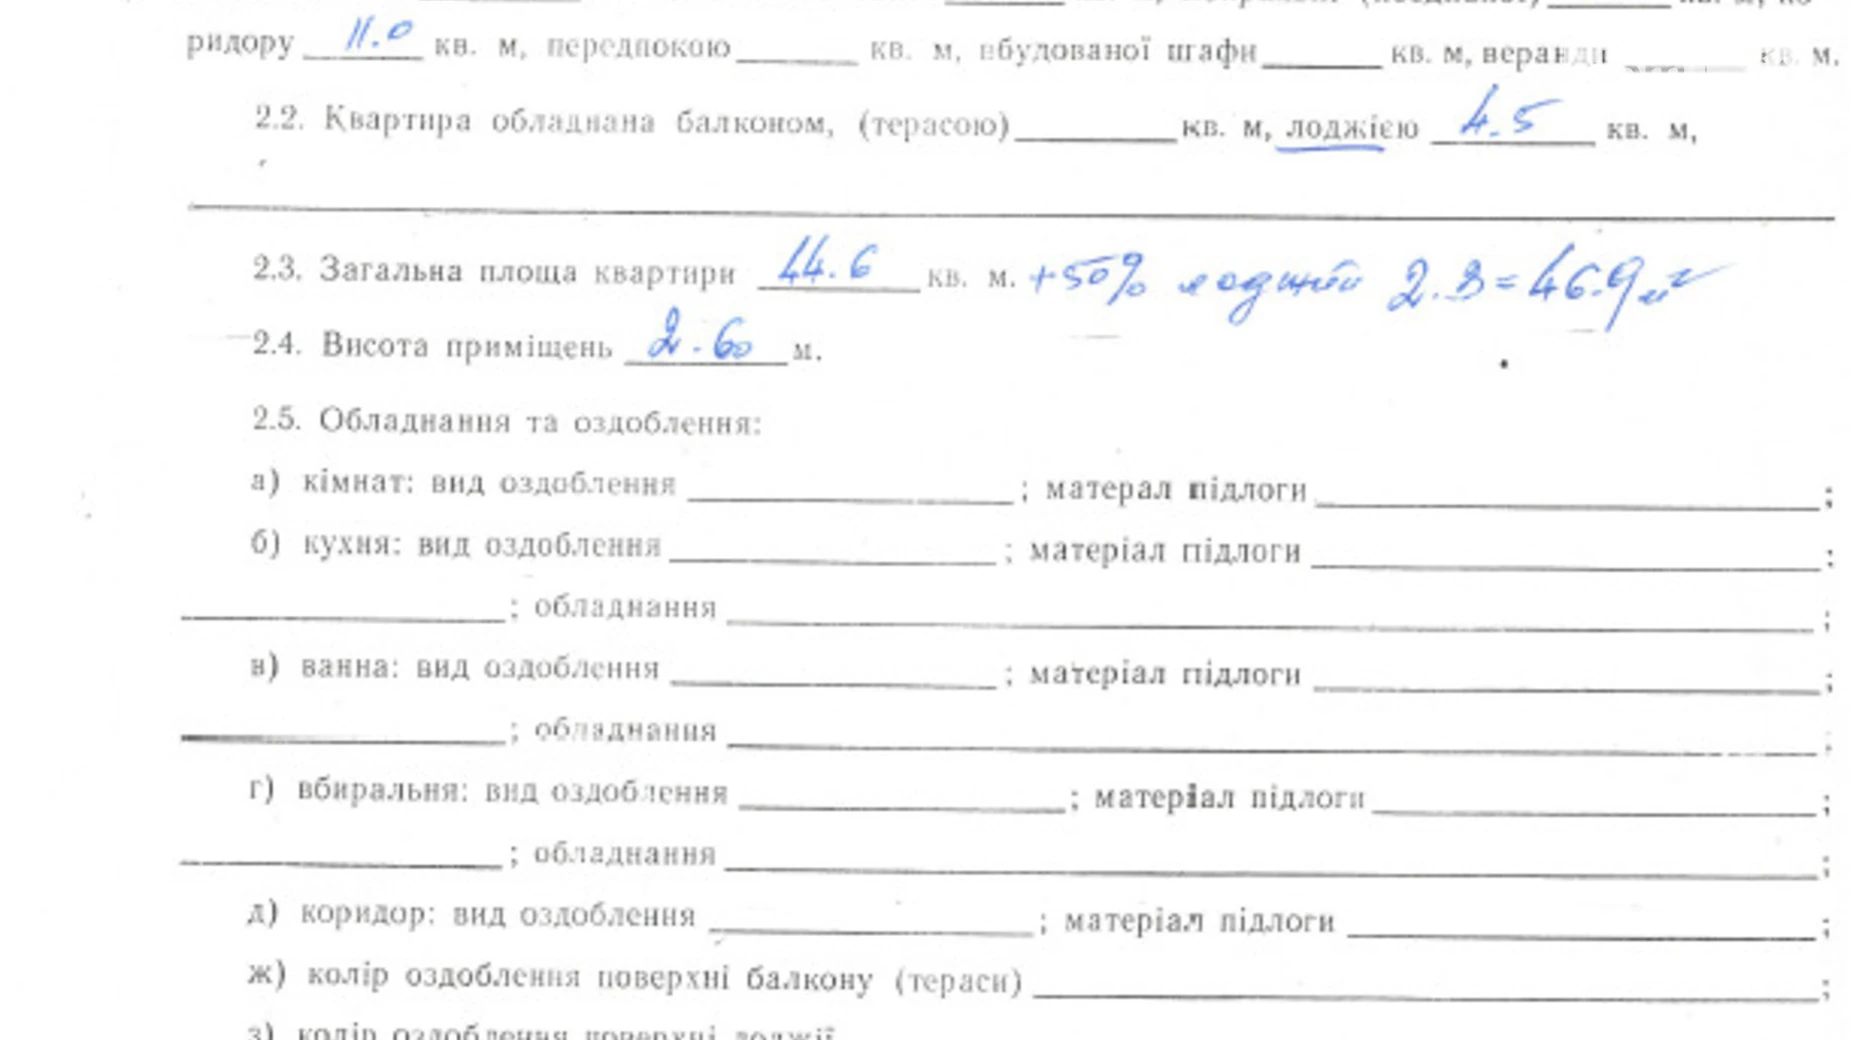 ридору 11.0 кв. м, передпокою______ кв. м, вбудованої шафи______ кв. м, веранди ______ кв. м.
2.2. Квартира обладнана балконом, (терасою)______ кв. м, лоджією 4.5 кв. м,
2.3. Загальна площа квартири 44.6 кв. м. +50% лоджії 2.3=46.9 м²
2.4. Висота приміщень 2.60 м.
2.5. Обладнання та оздоблення:
а) кімнат: вид оздоблення ______; матерал підлоги ______;
б) кухня: вид оздоблення ______; матеріал підлоги ______;
______; обладнання ______;
в) ванна: вид оздоблення ______; матеріал підлоги ______;
______; обладнання ______;
г) вбиральня: вид оздоблення ______; матеріал підлоги ______;
______; обладнання ______;
д) коридор: вид оздоблення ______; матеріал підлоги ______;
ж) колір оздоблення поверхні балкону (тераси) ______;
з) колір оздоблення поверхні лоджії